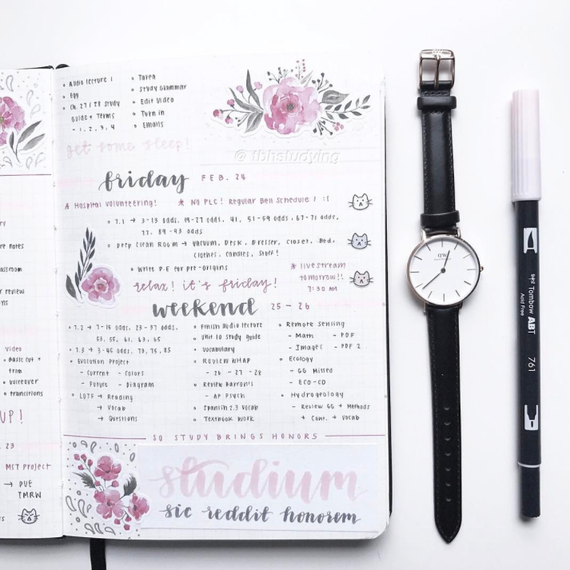 Audio lecture 1
Egg
Ch. 27 & 28 Study
Guide & Terms
- 1, 2, 3, 4
Study Grammar
Edit Video
Turn in
Emails
get some sleep!
@tbhstudying
friday FEB. 24
Hospital volunteering! * No PLC! Regular Bell Schedule
7.1 → 3-13 odds, 19-27 odds, 41, 51-59 odds, 67-71 odds,
77, 89-93 odds
Deep Clean Room → Vacuum, Deck, Dresser, Closet, Bed,
Clothes, Candles, Stuff!
Write P.E for pre-origins
* livestream
tomorrow!!
7:30 AM
relax! it's friday!
weekend 25-26
7.2 → 7-15 odds, 25-37 odds,
53, 55, 61, 63, 65
7.3 → 3-45 odds, 73, 75, 85
Evolution Project
- Current - Colors
- Future - Diagram
LOTS → Reading
→ Vocab
→ Questions
Finish Audio lecture
Unit 10 Study guide
Vocabulary
Review WHAP
- 26 - 27 - 28
Review Barron's
- AP Psych
Spanish 2.3 Vocab
Textbook Work
Remote Sensing
- Math - PDF
- Images - PDF 2
Ecology
- GG Milled
- ECO-CD
Hydrogeology
- Review GG & Methods
→ Conc. → Vocab
SO STUDY BRINGS HONORS
studium
sic reddit honorem
re notes
video
term
voiceover
transitions
UP!
. 23
MST Project
→ DUE
TMRW
QWL
Tombow ABT
761